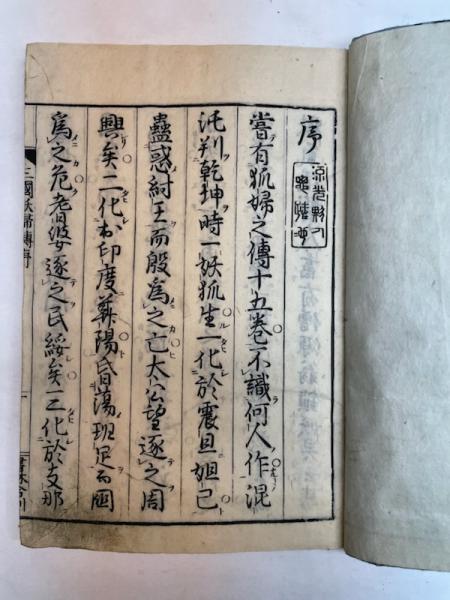 序
嘗有狐婦之傳十五卷不識何人作混
沌判乾坤時一妖狐生一化於震旦妲己
蠱惑紂王而殷爲之亡太公望逐之周
興矣二化於印度華陽昏蕩班足而國
爲之危耆婆逐之民綏矣三化於支那
三國妖婦傳序